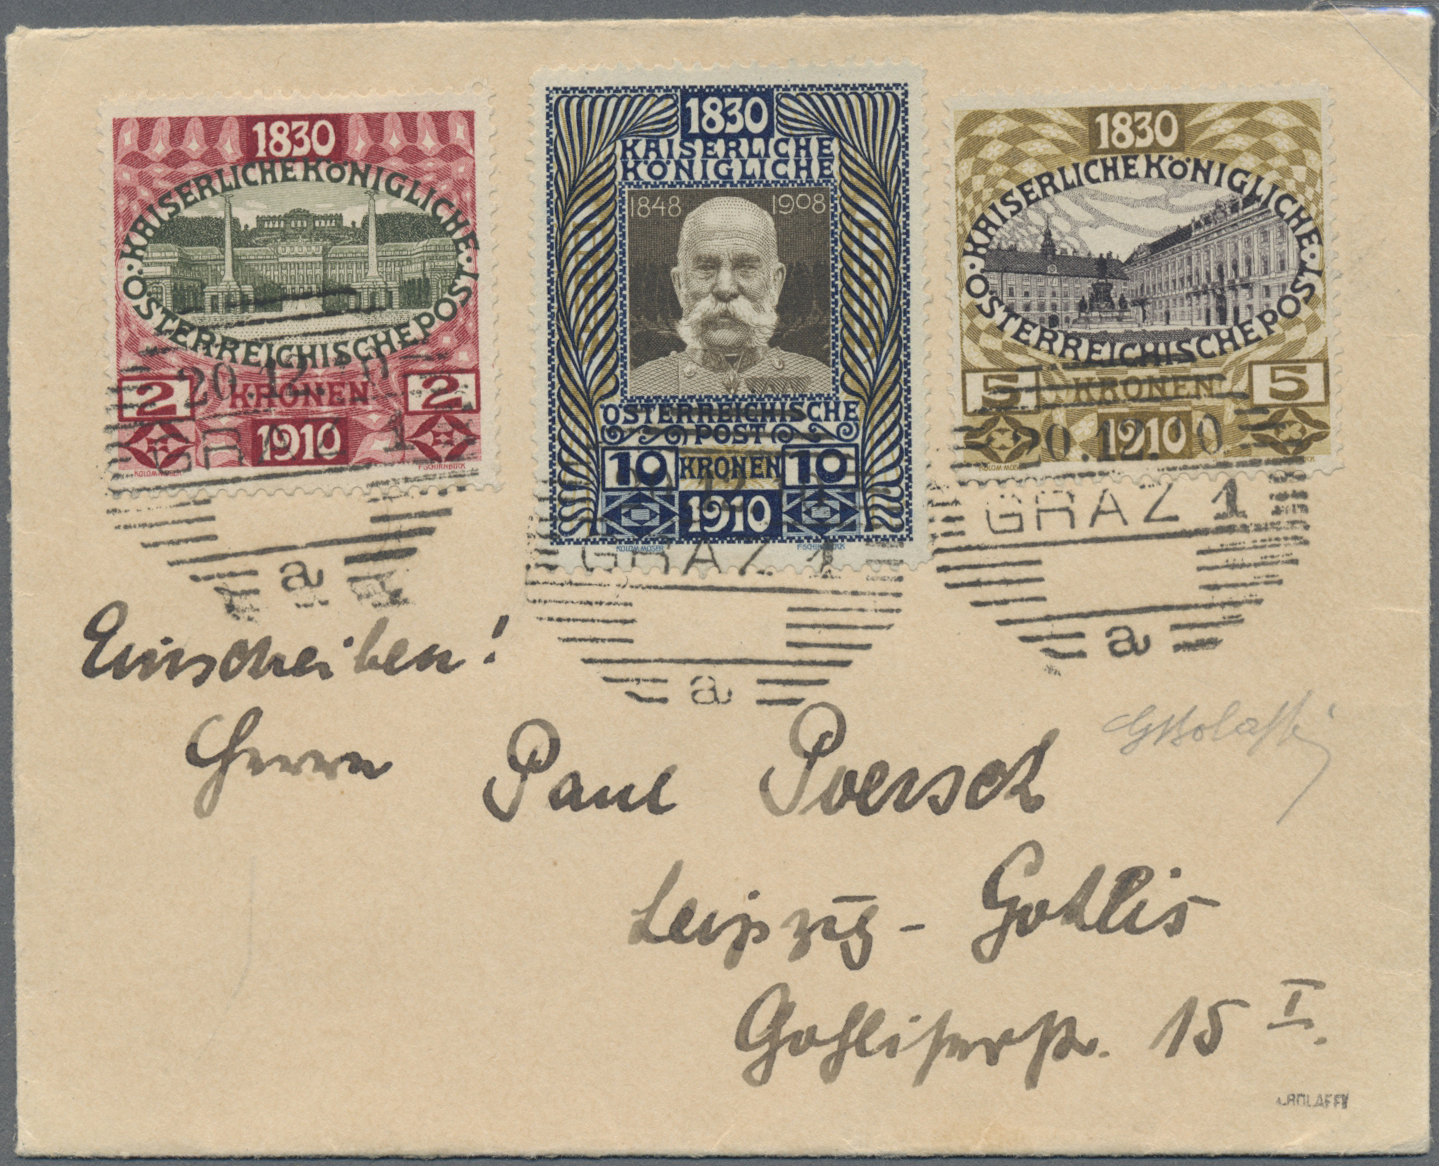 1830
KAISERLICHE KÖNIGLICHE
ÖSTERREICHISCHE POST
2 KRONEN 2
1910
KOLOM. MOSER
F.SCHIRNBÖCK
1830
KAISERLICHE
KÖNIGLICHE
1848 1908
ÖSTERREICHISCHE
POST
10 KRONEN 10
1910
KOLOM. MOSER
F.SCHIRNBÖCK
1830
KAISERLICHE KÖNIGLICHE
ÖSTERREICHISCHE POST
5 KRONEN 5
1910
20.12.10
GRAZ 1
a
GRAZ 1
a
20.12.10
GRAZ 1
a
Einschreiben!
Herrn Paul Poersch
Leipzig - Gohlis
Gohliserstr. 15 I.
GBolaffi
BOLAFFI